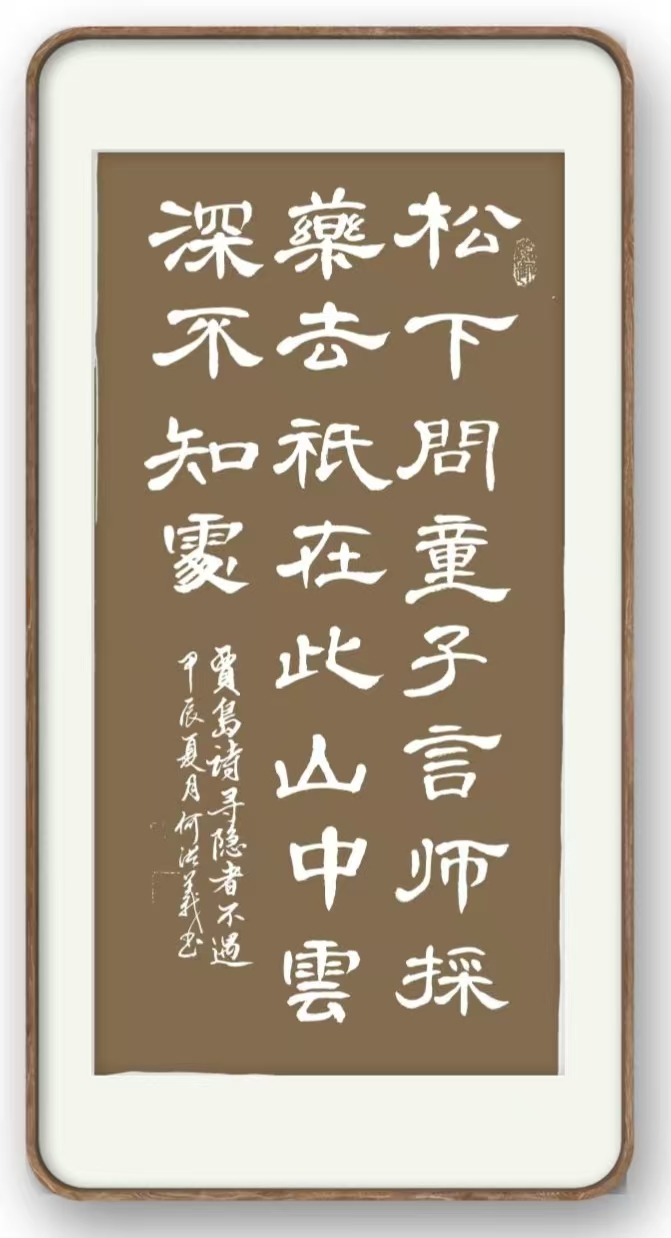 松下問童子言师採
藥去祇在此山中雲
深不知處
賈島诗寻隐者不遇
甲辰夏月何洪義书